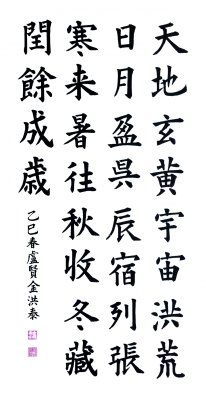 天地玄黄宇宙洪荒
日月盈昃辰宿列張
寒来暑往秋收冬藏
閏餘成歳
乙巳春盧賢金洪泰